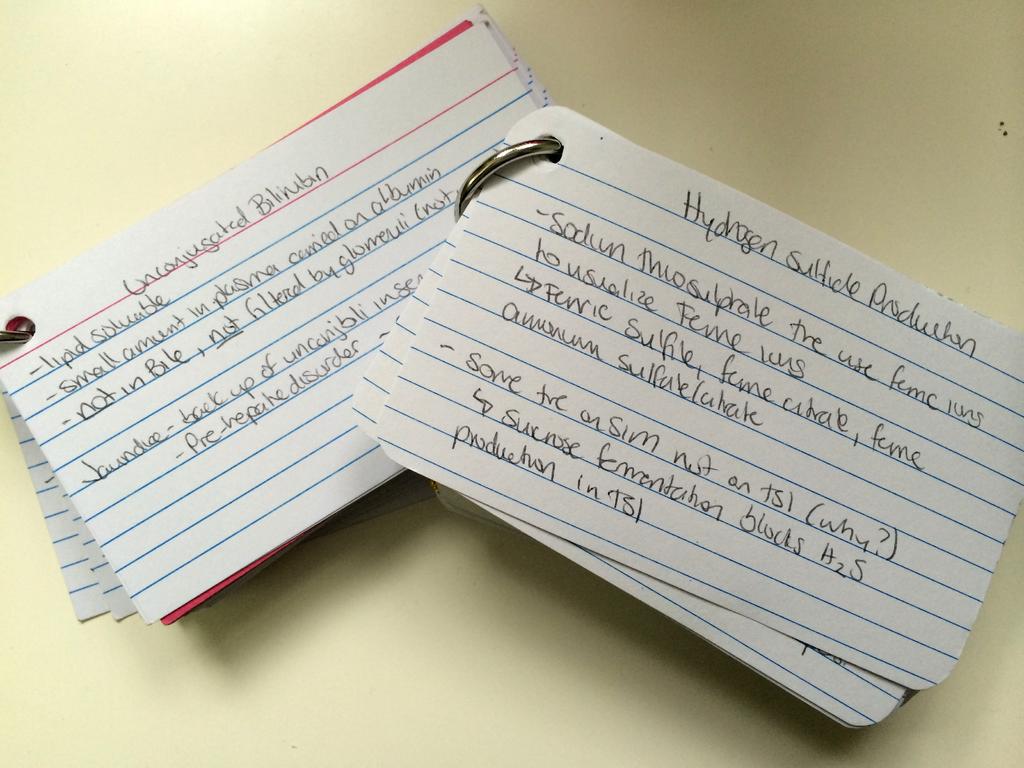 Unconjugated Bilirubin
- lipid soluable
- small amount in plasma carried on albumin
- not in Bile, not filtered by glomeruli (not
Jaundice - back up of unconj bili in ser
- Pre-hepatic disorder
Hydrogen Sulfide Production
- Sodium thiosulphate the use ferric ions
to visualize Ferric ions
↳ Ferric Sulfite, ferric citrate, ferric
ammonium sulfate/citrate
- some tve on SIM not on TSI (why?)
↳ Sucrose fermentation blocks H2S
production in TSI